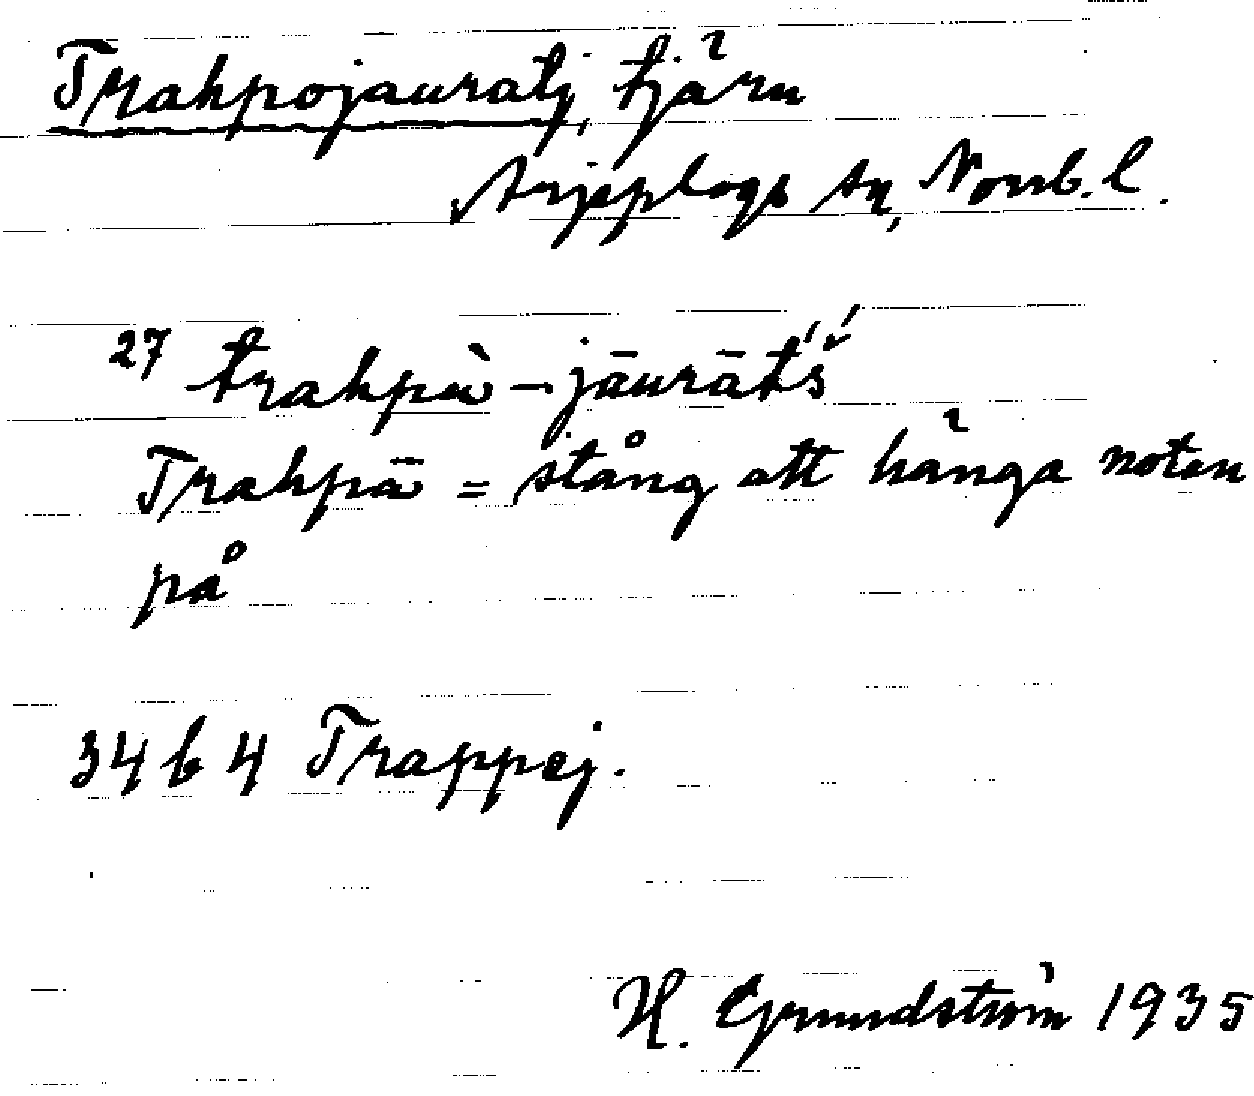 Trahpojauratj, tjärn
Arjeplogs sn, Norrb. l.
27 trahpȧ̀ - jāurātś
Trahpā = stång att hänga noten
på
34 b 4 Trappej.
H. Grundström 1935